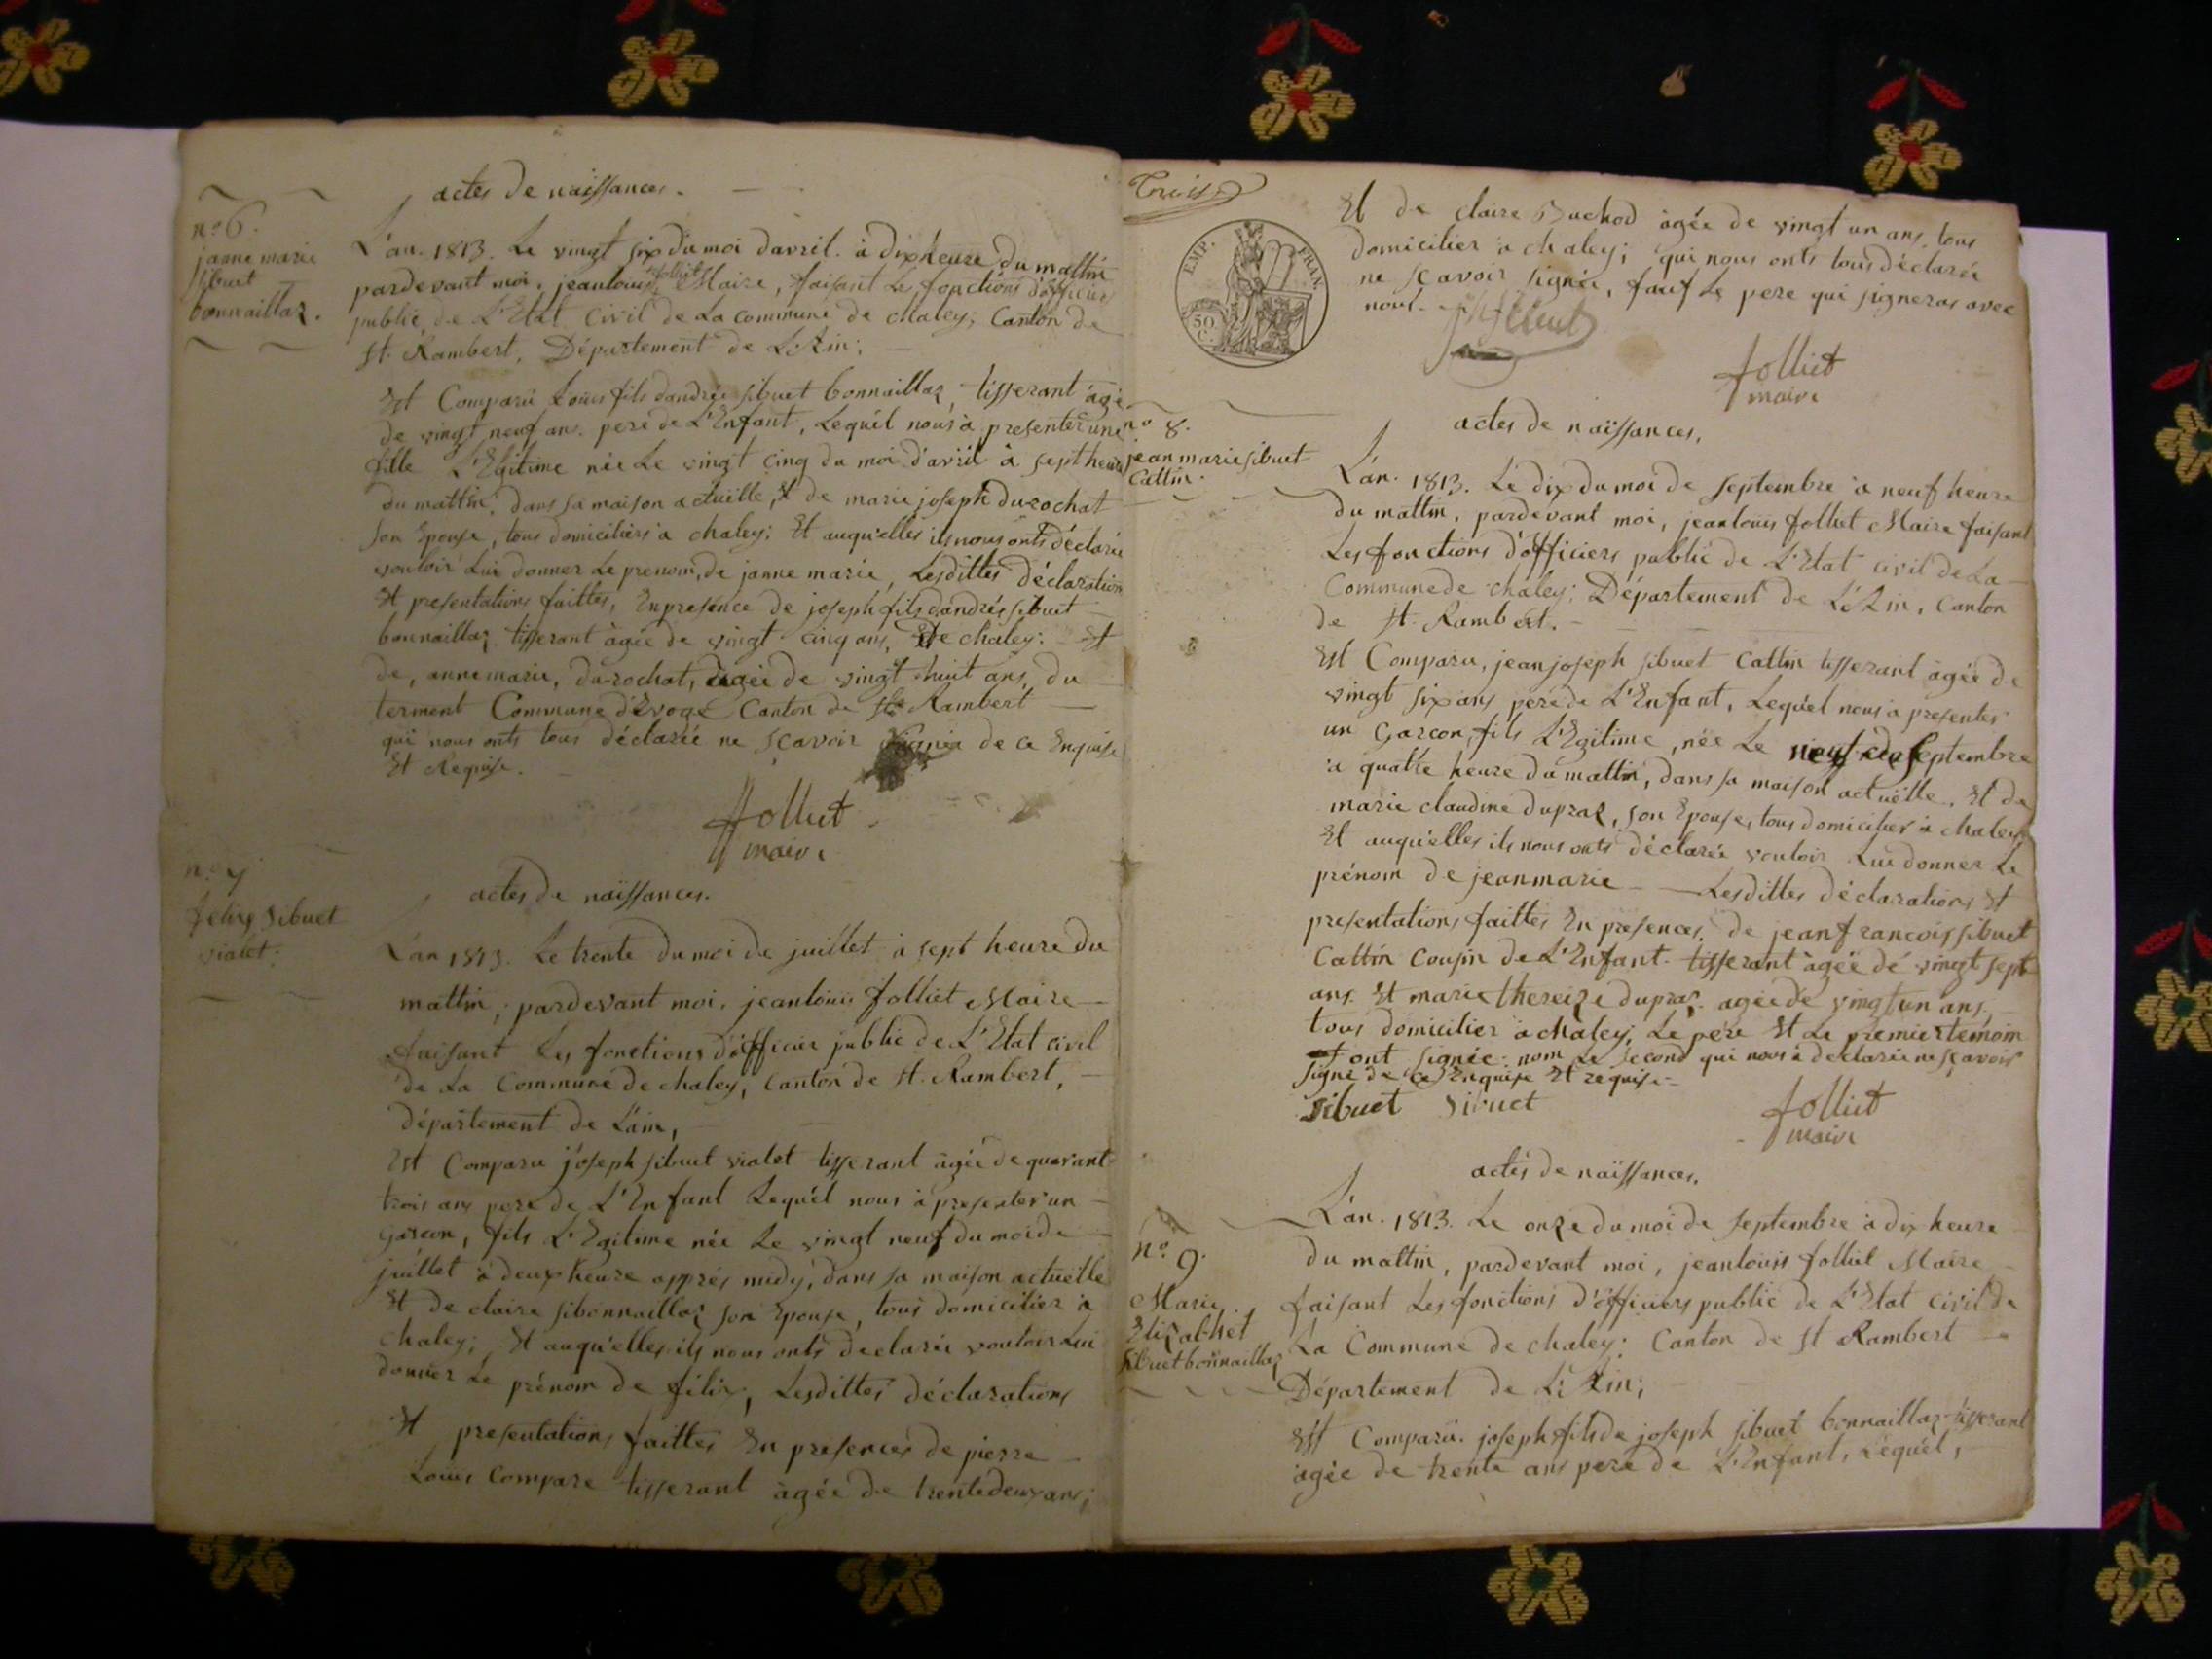 actes de naissances.
n.o 6.
janne marie
sibuet
bonnaillaz.
L'an. 1813. Le vingt six du moi davril. à dix heure du mattin
pardevant moi, jeanlouis folliet Maire, faisant Les fonctions d'officiers
public, de L'Etat Civil de La Commune de chaley; Canton de
St. Rambert, Département de L'Ain;
Est Comparu Louis fils dandré sibuet bonnaillaz, tisserant âgé
de vingt neuf ans. pere de L'Enfant, Lequél nous à presenter une
fille L'Egitime née Le vingt cinq du moi d'avril à sept heure
du mattin, dans sa maison actuëlle, Et de marie joseph durochat
son Epouse, tous domiciliers à chaley; Et auqu'elles ils nous onts déclarée
vouloir Lui donner Le prenom, de janne marie, Lesdittes déclaration
Et presentations faittes, En presence de joseph fils dandrés sibuet
bonnaillaz tisserant âgée de vingt cinq ans, De chaley: Et
de, anne marie, durochat, âgée de vingt huit ans, du
terment Commune d'Evoge Canton de St Rambert
qui nous onts tous déclarée ne sçavoir signér de ce Enquise
Et Requise.
folliet
maire
n.o 7
felix Sibuet
vialet.
actes de naïssances.
L'an 1813. Le trente du moi de juillet à sept heure du
mattin, pardevant moi, jeanlouis folliet Maire
faisant Les fonctions d'officier public de L'Etat civil
de La Commune de chaley, Canton de St. Rambert,
Département de L'ain,
Est Comparu joseph sibuet vialet tisserant âgée de quarant
trois ans pere de L'Enfant Lequél nous à presenter un
Garcon, fils L'Egitime née Le vingt neuf du moi de
juillet à deux heure apprés midy, dans sa maison actuëlle
Et de claire sibonnaillaz son Epouse, tous domicilier à
chaley; Et auqu'elles ils nous onts declarée vouloir Lui
donner Le prénom de félix, Lesdittes déclarations
Et presentations faittes En presences de pierre
Louis Compare tisserant âgée de trente deux ans;
Trois
EMP. FRAN.
50 C.
Et de claire Buchod âgée de vingt un ans, tous
domicilier à chaley; qui nous onts tous déclarée
ne sçavoir signée, sauf Le pere qui signeras avec
nous.
folliet
maire
n.o 8.
jean marie sibuet
Cattin.
actes de naïssances,
L'an. 1813. Le dix du moi de septembre à neuf heure
du mattin, pardevant moi, jeanlouis folliet Maire faisant
Les fonctions d'officiers public de L'Etat civil de La
Commune de chaley; Département de L'Ain, Canton
de St. Rambert.
Est Comparu, jean joseph sibuet Cattin tisserant âgée de
vingt six ans pere de L'Enfant, Lequél nous à presenter
un Garcon, fils L'Egitime, née Le neuf du septembre
à quattre heure du mattin, dans sa maison actuëlle, Et de
marie claudine dupraz, son Epouse, tous domicilier à chaley
Et auqu'elles ils nous onts déclarée vouloir Lui donner Le
prénom de jean marie Lesdittes déclarations Et
presentations faittes En presences, de jean francois sibuet
Cattin Cousin de L'Enfant. tisserant âgée de vingt sept
ans. Et marie thereize dupraz. agée de vingt un ans,
tous domicilier à chaley, Le pere Et Le premier temoin
ont signée. nom Le second qui nous à declarée ne sçavoir
signé de Ce Enquise Et requise
Sibuet Sibuet
folliet
maire
actes de naïssances,
n.o 9.
Marie
Elizabhet
Sibuet bonnaillaz
L'an. 1813. Le onze du moi de septembre à dix heure
du mattin, pardevant moi, jeanlouis folliet Maire
faisant Les fonctions d'officiers public de L'Etat civil de
La Commune de chaley; Canton de St Rambert
Département de L'Ain;
Est Comparu. joseph fils de joseph sibuet bonnaillaz tisserant
agée de trente ans pere de L'Enfant, Lequél,